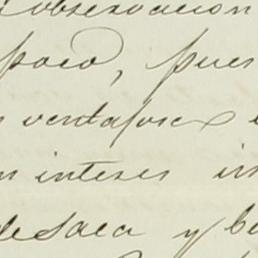 observacion
poco, pues
ventajosa
interes in
desaca y ba